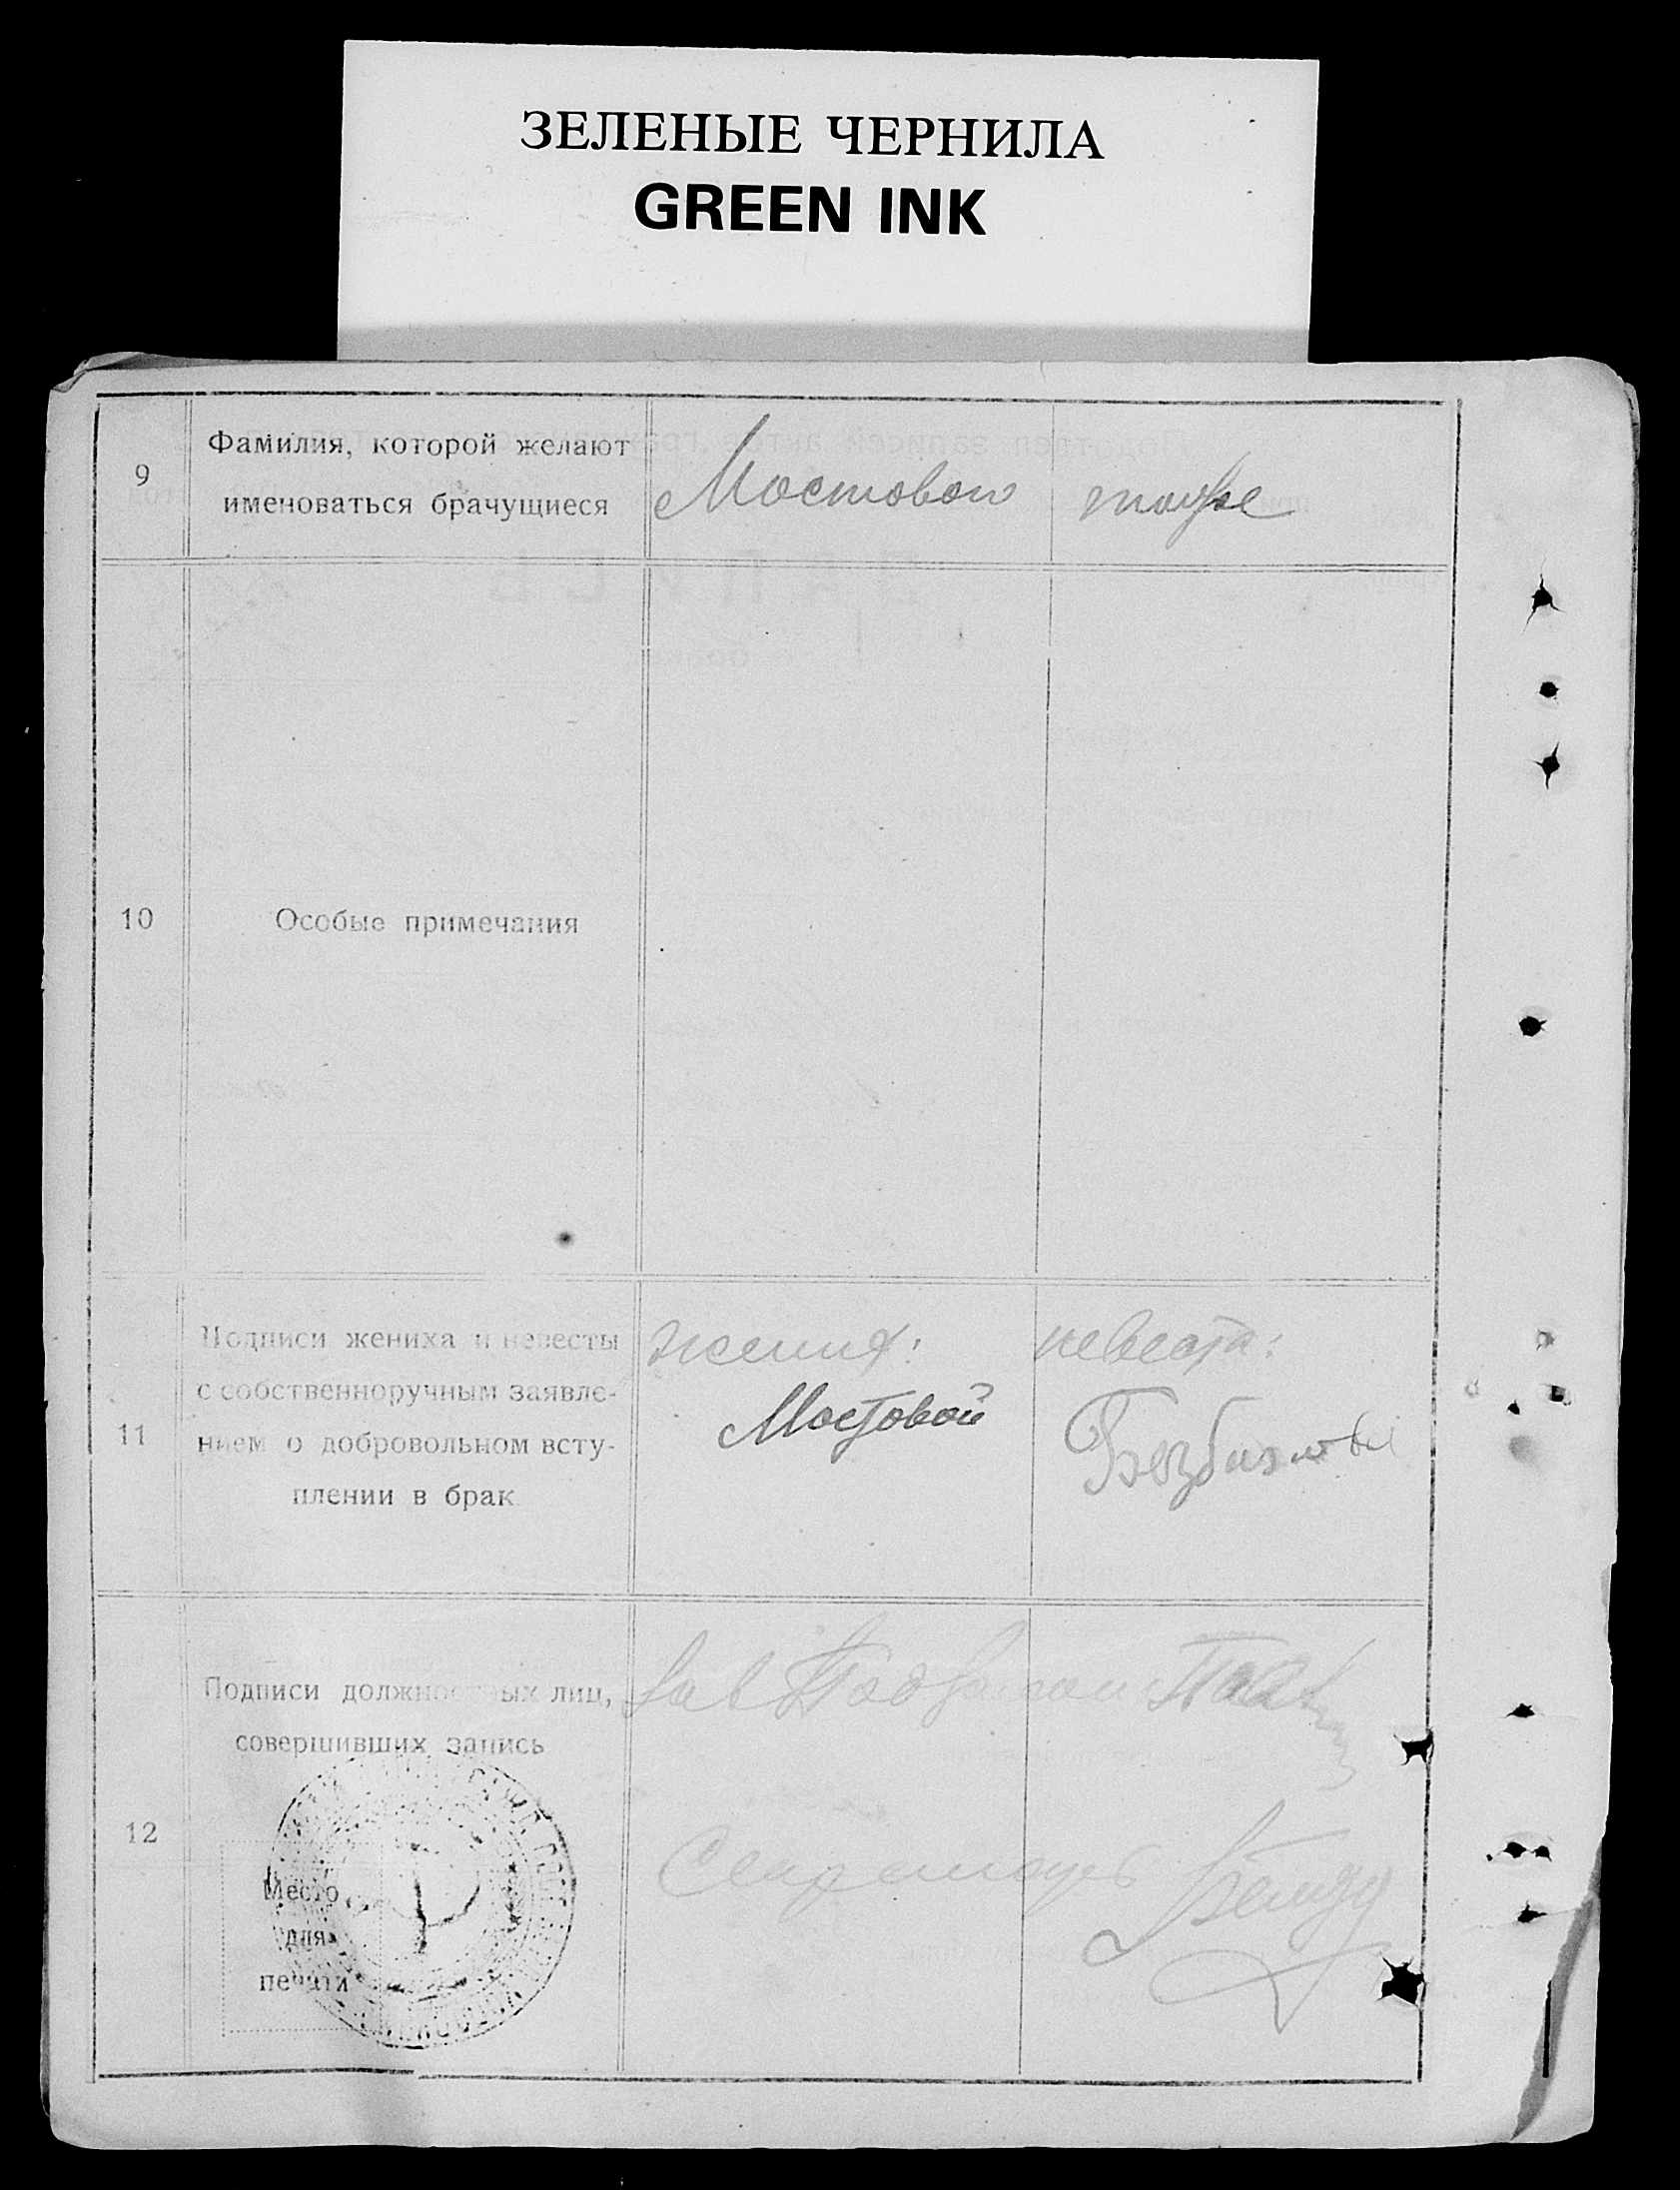 ЗЕЛЕНЫЕ ЧЕРНИЛА
GREEN INK
9
Фамилия, которой желают
именоваться брачущиеся
Мостовой тоже
10
Особые примечания
11
Подписи жениха и невесты
с собственноручным заявле-
нием о добровольном всту-
плении в брак
жених: невеста:
Мостовой
12
Подписи должностных лиц,
совершивших запись
Зав
Секретарь
Место
для
печати